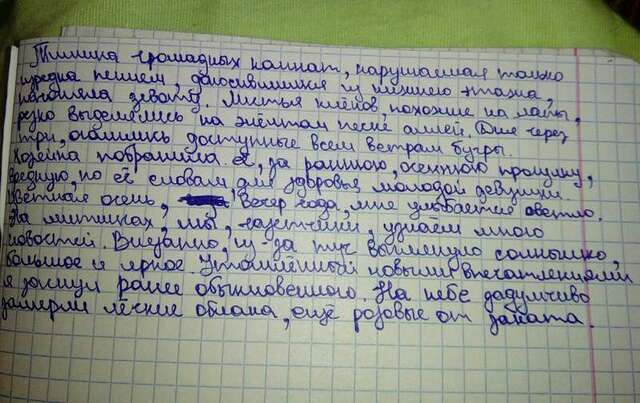 Тишина громадных комнат, нарушаемая только
изредка пением, доносившимся из нижнего этажа,
нагоняла зевоту. Листья клёнов, похожие на лапы,
резко выделялись на жёлтом песке аллей. Дня через
три, оголились доступные всем ветрам бугры.
Хозяйка побранила за раннюю, осеннюю прогулку,
вредную, по её словам для здоровья молодой девушки.
Цветная осень, вечер года, мне улыбается светло.
На митинках, мы, газетчики, узнаём много
новостей. Внезапно, из-за туч выглянуло солнышко,
большое и яркое. Утомлённый новыми впечатлениями
я заснул ранее обыкновенного. На небе задумчиво
замерли лёгкие облака, ещё розовые от заката.